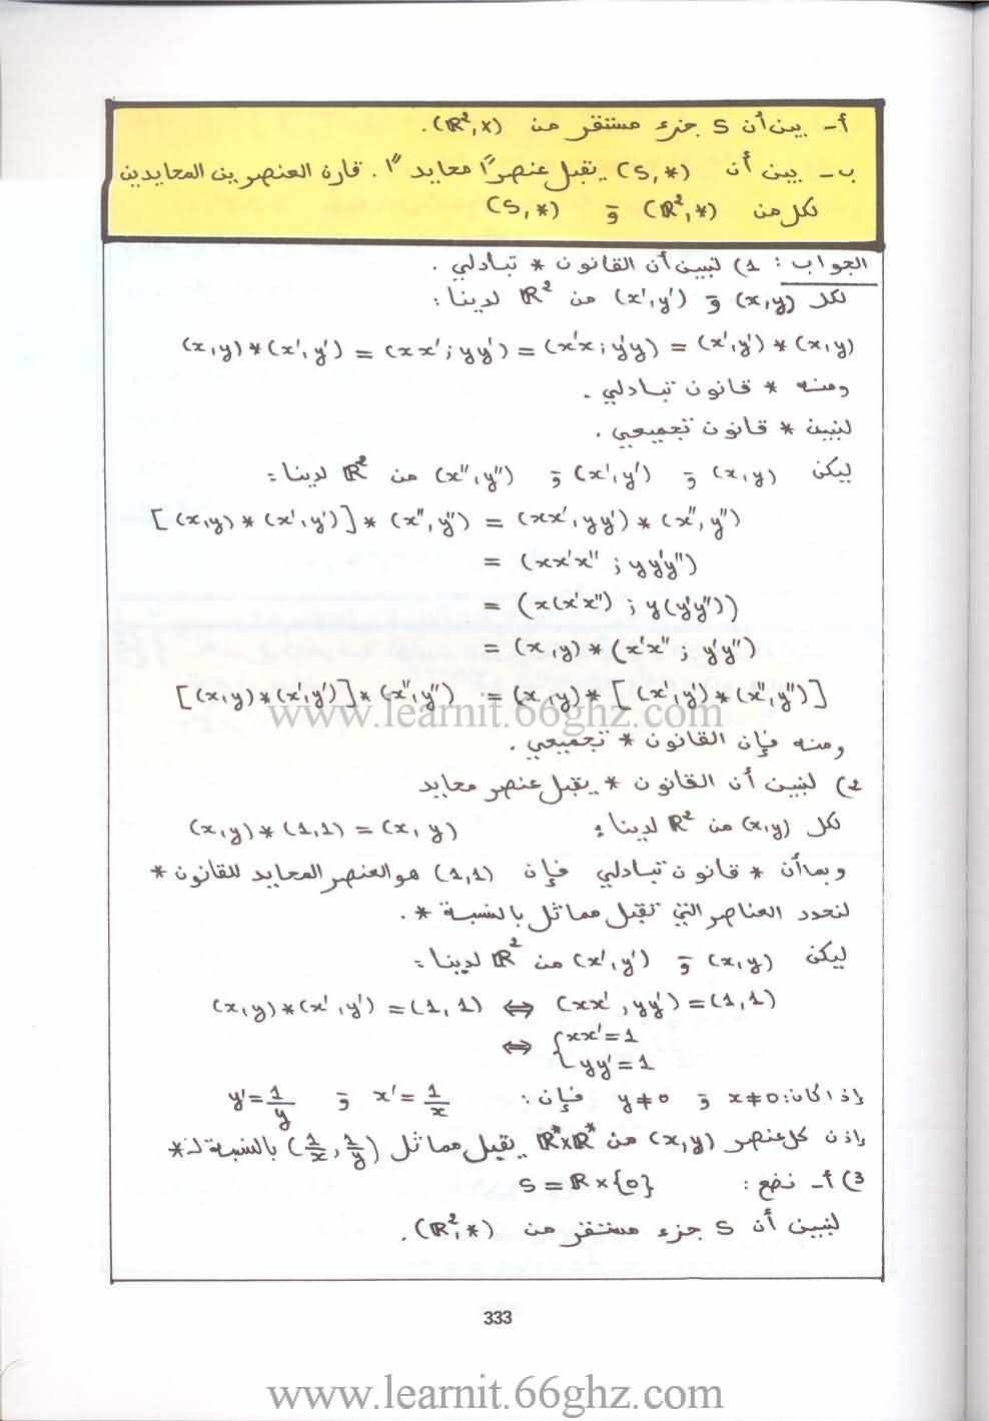 أ- بين أن S جزء مستقر من (ℝ², x).
ب- بين أن (S,*) يقبل عنصرًا محايدًا. قارن العنصرين المحايدين
لكل من (ℝ²,*) و (S,*)
الجواب : 1) لنبين أن القانون * تبادلي .
لكل (x,y) و (x',y') من ℝ² لدينا :
(x,y)*(x',y') = (xx';yy') = (x'x;y'y) = (x',y')*(x,y)
ومنه * قانون تبادلي .
لنبين * قانون تجميعي .
ليكن (x,y) و (x',y') و (x'',y'') من ℝ² لدينا :
[(x,y)*(x',y')]*(x'',y'') = (xx',yy')*(x'',y'')
= (xx'x'' ; yy'y'')
= (x(x'x'') ; y(y'y''))
= (x,y)*(x'x'' ; y'y'')
[(x,y)*(x',y')]*(x'',y'') = (x,y)*[(x',y')*(x'',y'')]
www.learnit.66ghz.com
ومنه فإن القانون * تجميعي .
2) لنبين أن القانون * يقبل عنصر محايد
لكل (x,y) من ℝ² لدينا : (x,y)*(1,1) = (x,y)
وبما أن * قانون تبادلي فإن (1,1) هو العنصر المحايد للقانون *
لنحدد العناصر التي تقبل مماثل بالنسبة * .
ليكن (x,y) و (x',y') من ℝ² لدينا :
(x,y)*(x',y') = (1,1) ⇔ (xx',yy') = (1,1)
⇔ { xx'=1
yy'=1
إذا كان : x≠0 و y≠0 فإن : x'=1/x و y'=1/y
إذن كل عنصر (x,y) من ℝ*xℝ* يقبل مماثل (1/x , 1/y) بالنسبة لـ *
3) أ- نضع : S = ℝ x {0}
لنبين أن S جزء مستقر من (ℝ²,*) .
333
www.learnit.66ghz.com